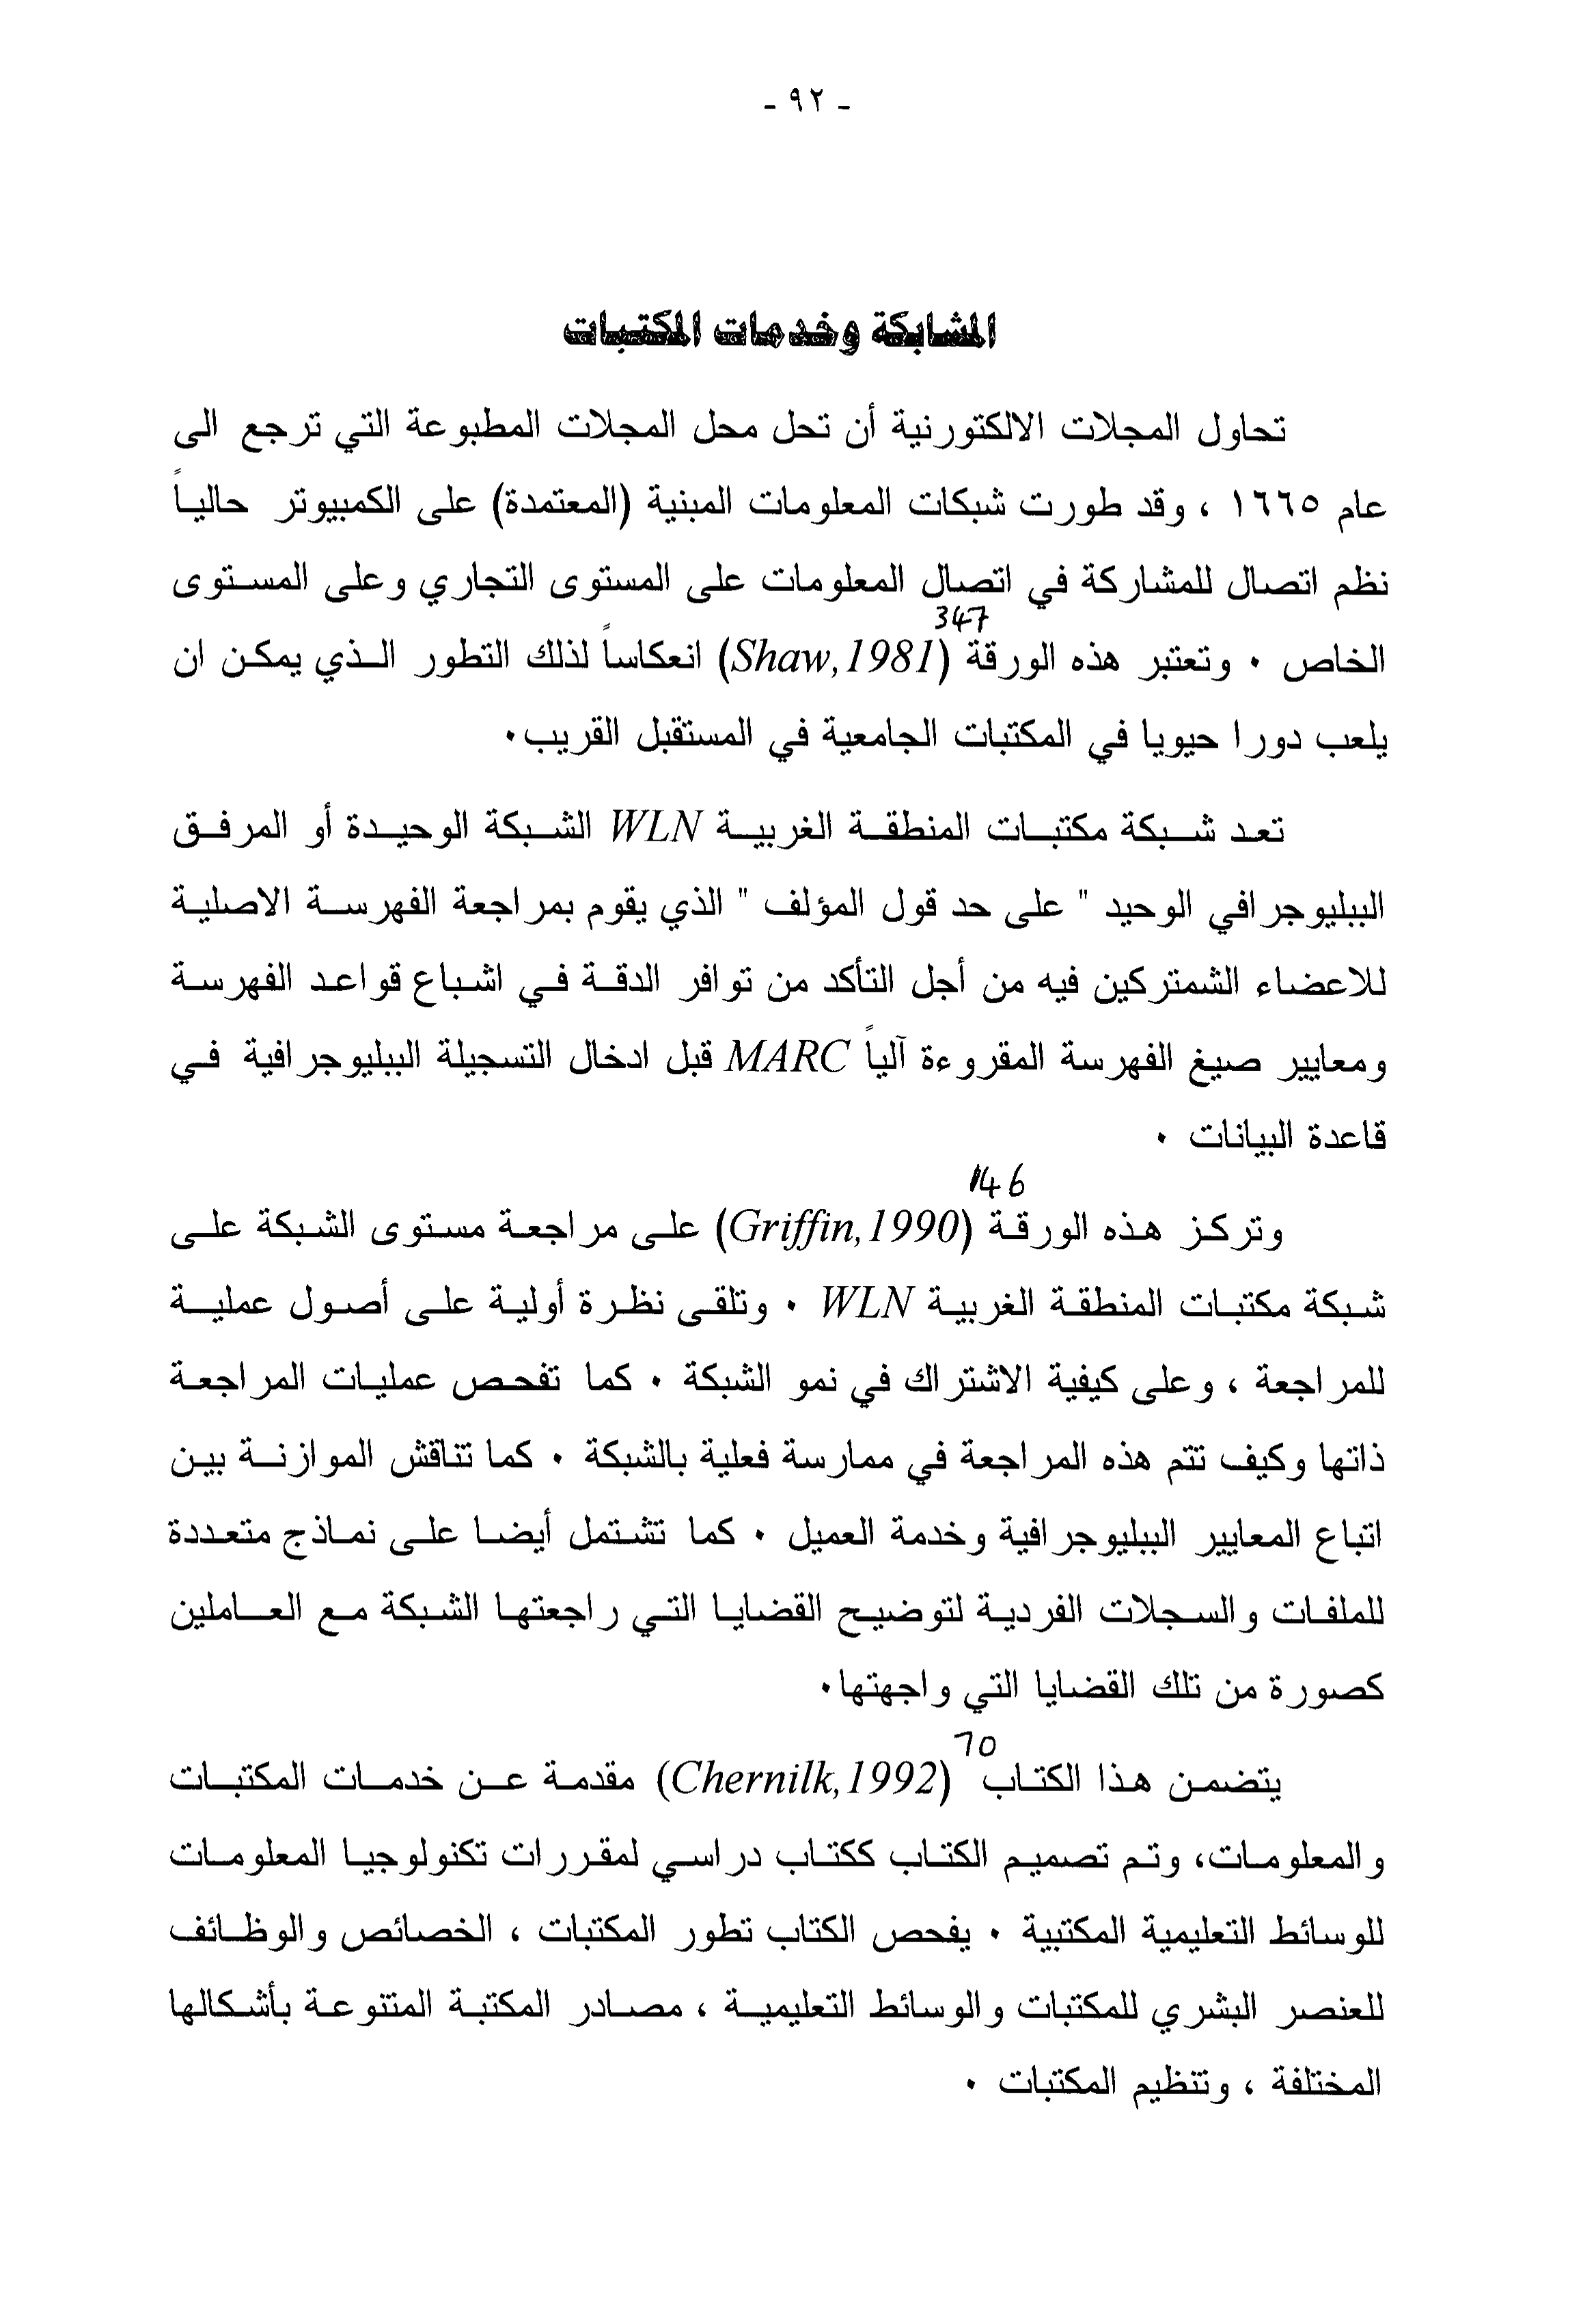 - ٩٢ -
المشابكة وخدمات المكتبات
تحاول المجلات الالكتورنية أن تحل محل المجلات المطبوعة التي ترجع الى
عام ١٦٦٥ ، وقد طورت شبكات المعلومات المبنية (المعتمدة) على الكمبيوتر حالياً
نظم اتصال للمشاركة في اتصال المعلومات على المستوى التجاري وعلى المستوى
347
الخاص ٠ وتعتبر هذه الورقة (Shaw,1981) انعكاساً لذلك التطور الذي يمكن ان
يلعب دورا حيويا في المكتبات الجامعية في المستقبل القريب٠
تعد شبكة مكتبات المنطقة الغربية WLN الشبكة الوحيدة أو المرفق
الببليوجرافي الوحيد " على حد قول المؤلف " الذي يقوم بمراجعة الفهرسة الاصلية
للاعضاء الشمتركين فيه من أجل التأكد من توافر الدقة في اشباع قواعد الفهرسة
ومعايير صيغ الفهرسة المقروءة آلياً MARC قبل ادخال التسجيلة الببليوجرافية في
قاعدة البيانات ٠
146
وتركز هذه الورقة (Griffin,1990) على مراجعة مستوى الشبكة على
شبكة مكتبات المنطقة الغربية WLN ٠ وتلقى نظرة أولية على أصول عملية
للمراجعة ، وعلى كيفية الاشتراك في نمو الشبكة ٠ كما تفحص عمليات المراجعة
ذاتها وكيف تتم هذه المراجعة في ممارسة فعلية بالشبكة ٠ كما تناقش الموازنة بين
اتباع المعايير الببليوجرافية وخدمة العميل ٠ كما تشتمل أيضا على نماذج متعددة
للملفات والسجلات الفردية لتوضيح القضايا التي راجعتها الشبكة مع العاملين
كصورة من تلك القضايا التي واجهتها٠
70
يتضمن هذا الكتاب (Chernilk,1992) مقدمة عن خدمات المكتبات
والمعلومات، وتم تصميم الكتاب ككتاب دراسي لمقررات تكنولوجيا المعلومات
للوسائط التعليمية المكتبية ٠ يفحص الكتاب تطور المكتبات ، الخصائص والوظائف
للعنصر البشري للمكتبات والوسائط التعليمية ، مصادر المكتبة المتنوعة بأشكالها
المختلفة ، وتنظيم المكتبات ٠